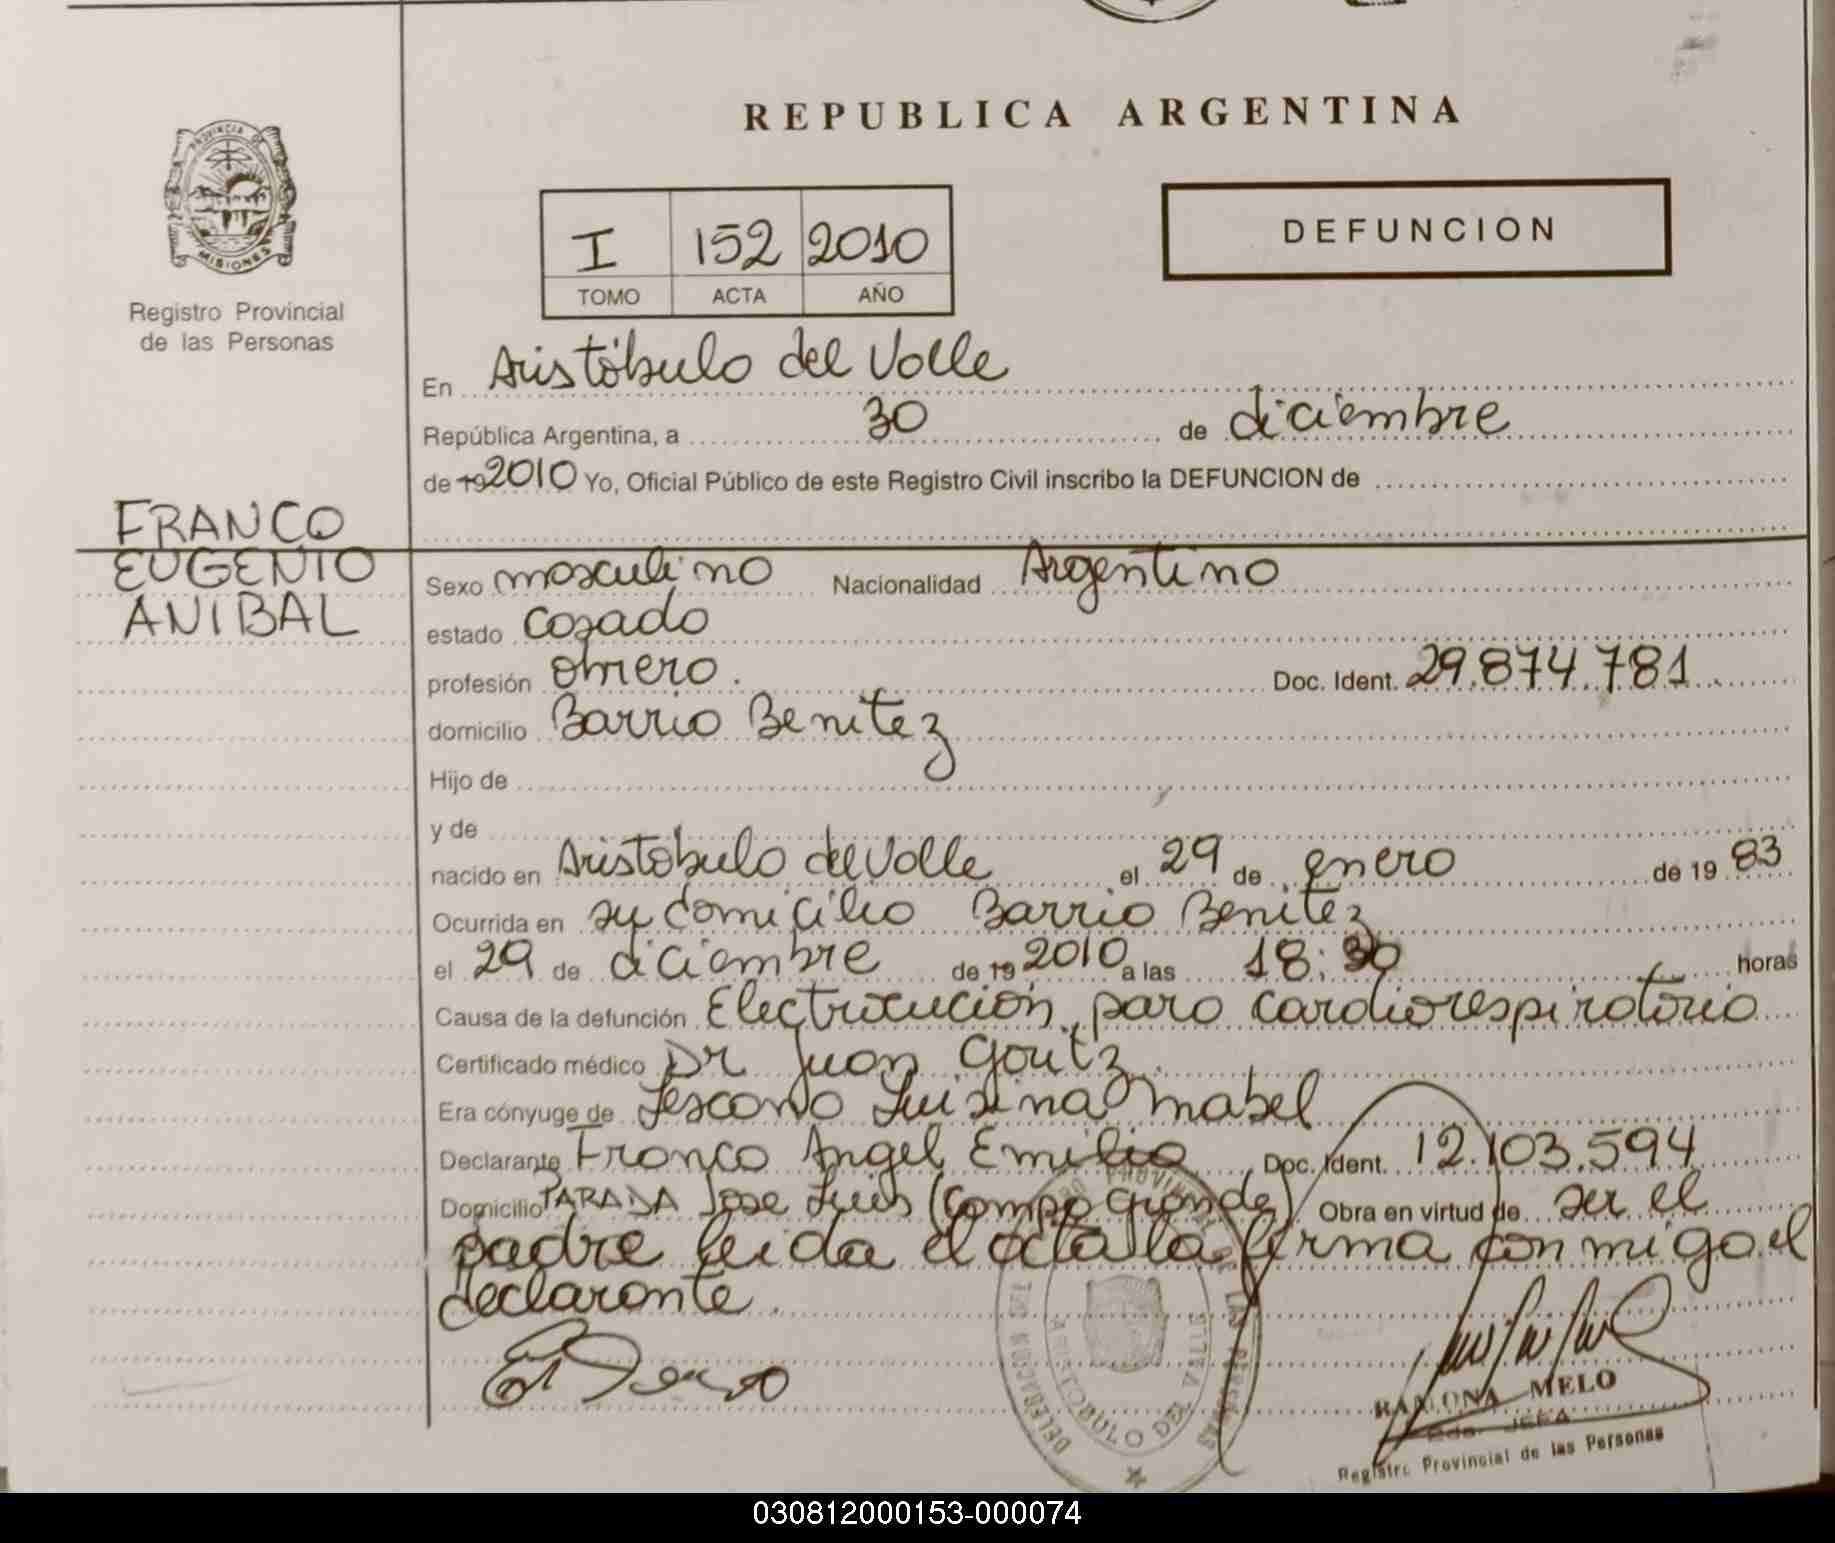 REPUBLICA ARGENTINA
PROVINCIA DE
MISIONES
Registro Provincial
de las Personas
I 152 2010
TOMO ACTA AÑO
DEFUNCION
En Aristóbulo del Valle
República Argentina, a 30 de diciembre
de 19 2010 Yo, Oficial Público de este Registro Civil inscribo la DEFUNCION de
FRANCO
EUGENIO
ANIBAL
Sexo masculino Nacionalidad Argentino
estado casado
profesión obrero. Doc. Ident. 29.874.781
domicilio Barrio Benitez
Hijo de
y de
nacido en Aristobulo del Valle el 29 de enero de 19 83
Ocurrida en su domicilio Barrio Benitez
el 29 de diciembre de 19 2010 a las 18:30 horas
Causa de la defunción Electrocución, paro cardiorespiratorio
Certificado médico Dr Juan Goutz
Era cónyuge de Lescano Luisina Mabel
Declarante Franco Angel Emilio Doc. Ident. 12.103.594
Domicilio PARADA Jose Luis (Campo Grande) Obra en virtud de ser el
padre leida el acta la firma conmigo el
declarante.
DELEGACION ARISTOBULO DEL VALLE
RAMONA MELO
JEFA
Registro Provincial de las Personas
030812000153-000074